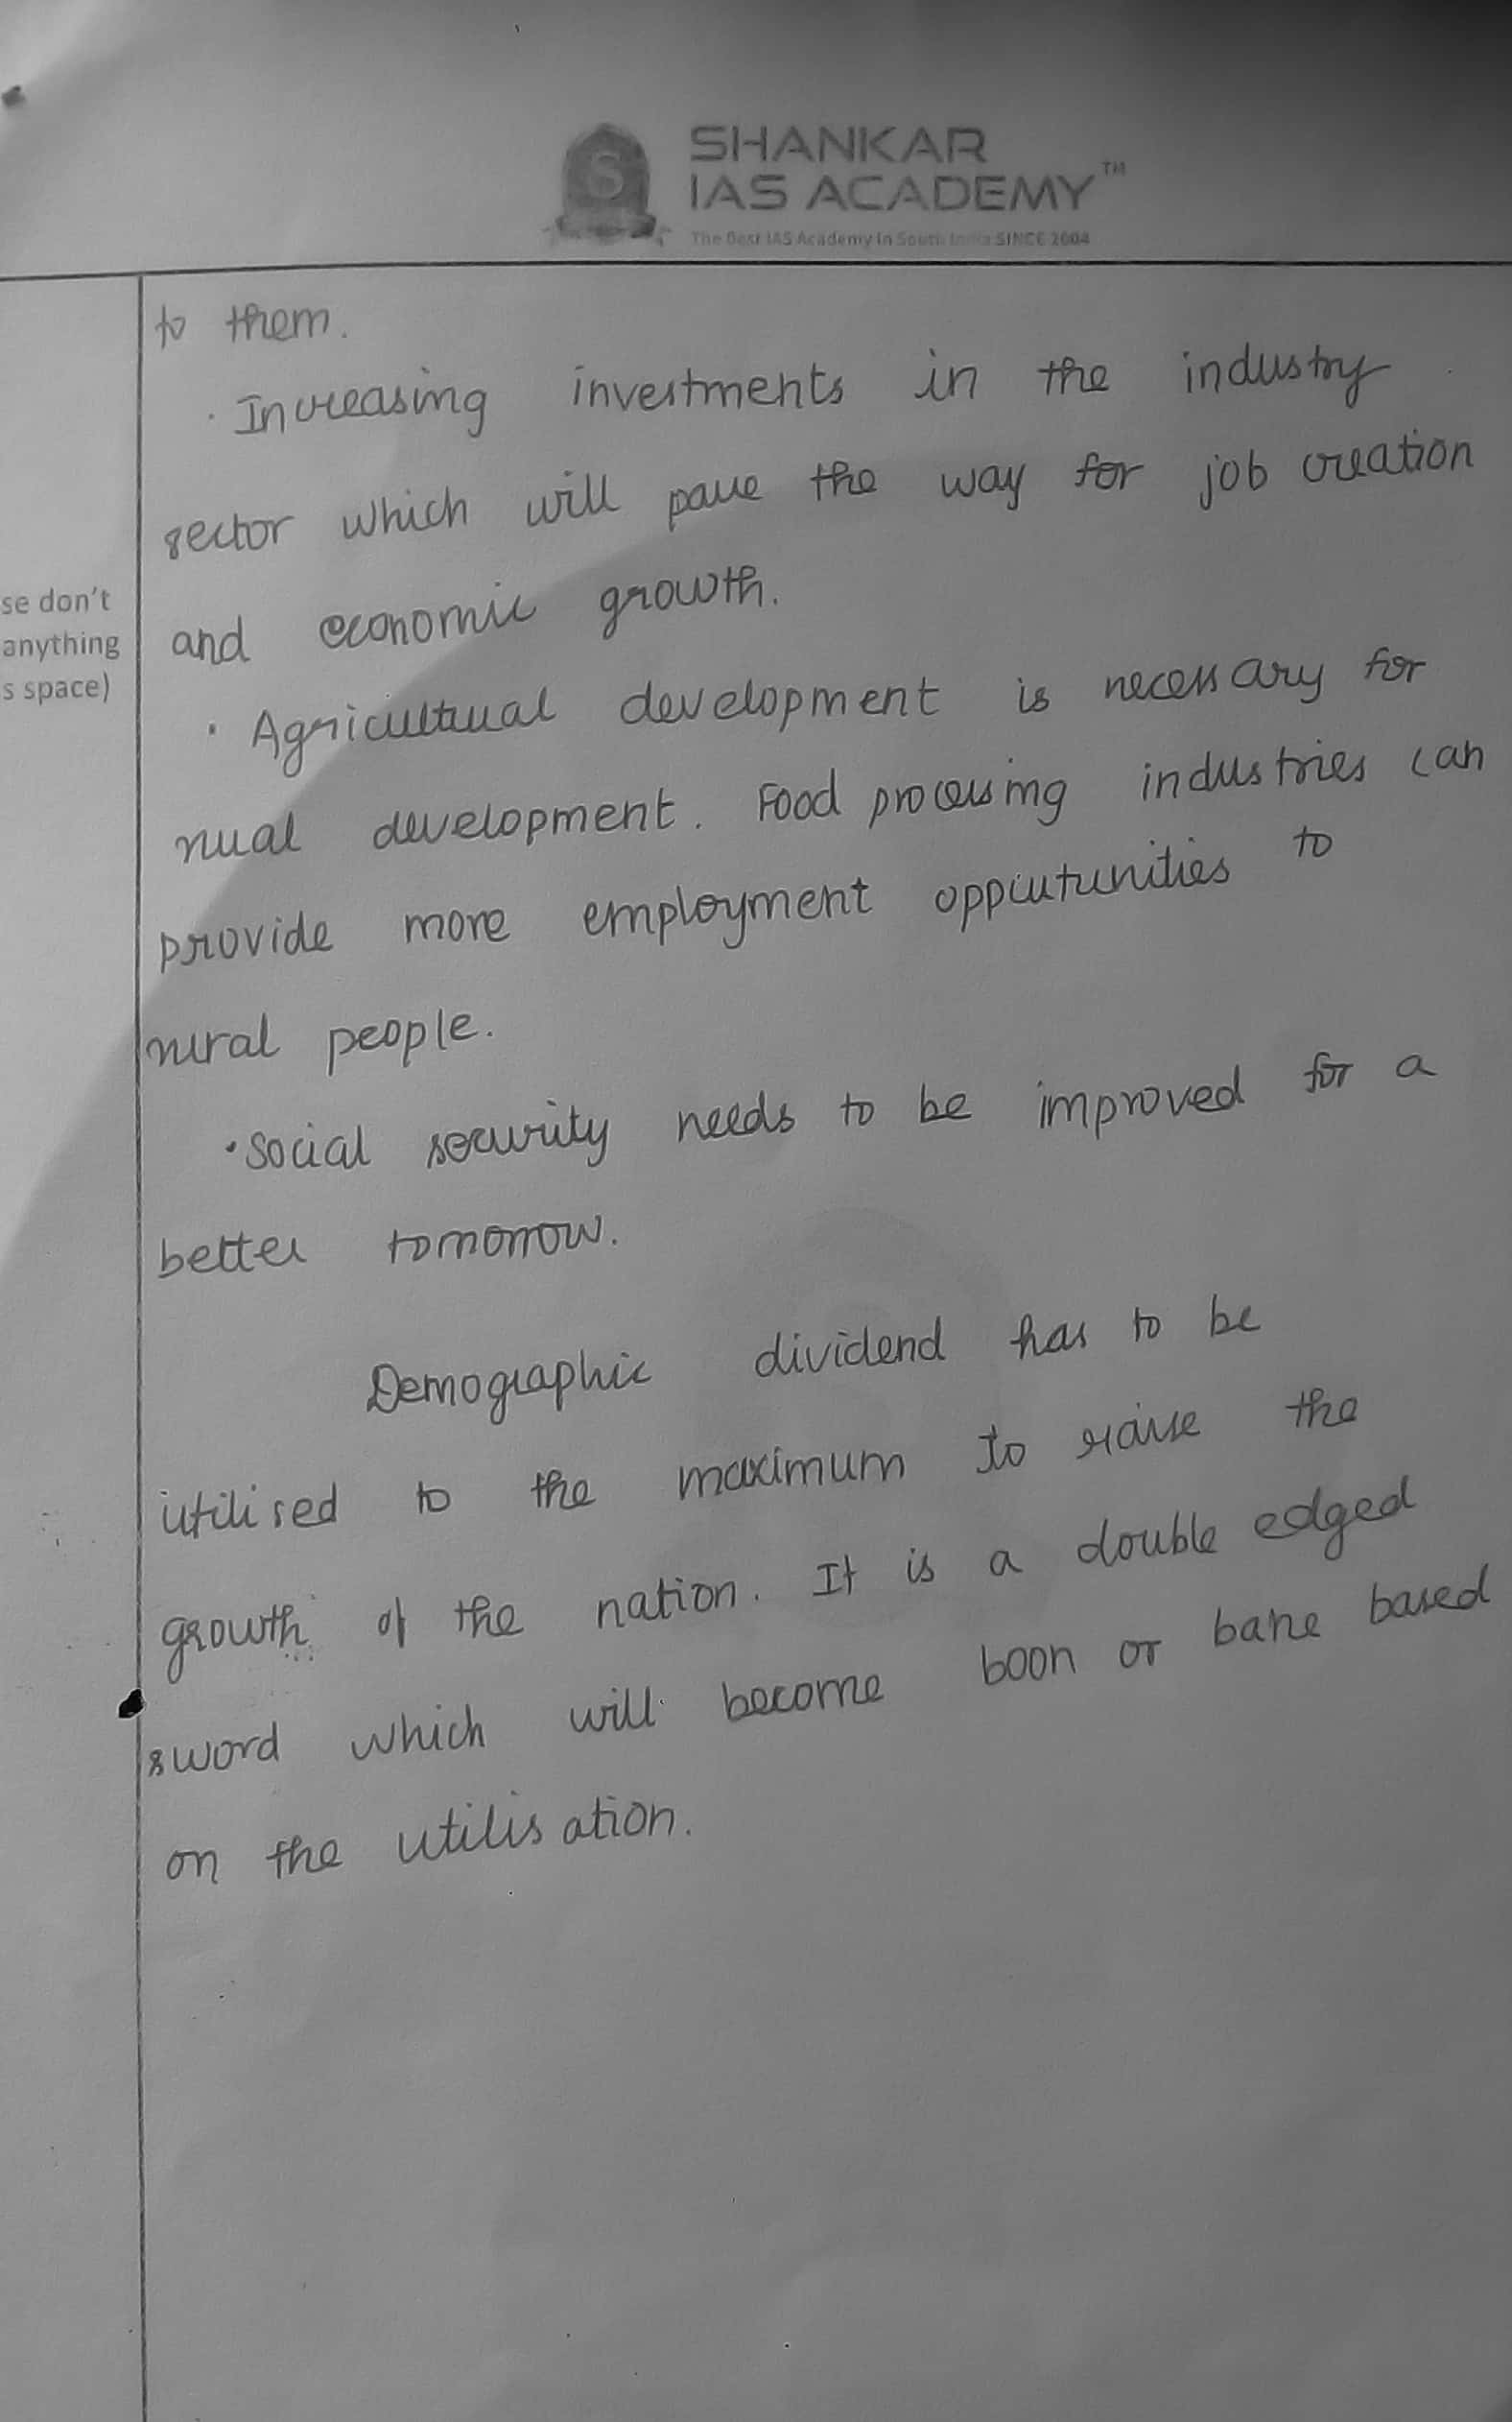 SHANKAR
IAS ACADEMY™
The Best IAS Academy In South India SINCE 2004
to them.
· Increasing investments in the industry
sector which will pave the way for job creation
and economic growth.
se don't
anything
s space)
· Agricultural development is necessary for
rural development. Food processing industries can
provide more employment opportunities to
rural people.
· Social security needs to be improved for a
better tomorrow.
Demographic dividend has to be
utilised to the maximum to raise the
growth of the nation. It is a double edged
sword which will become boon or bane based
on the utilisation.